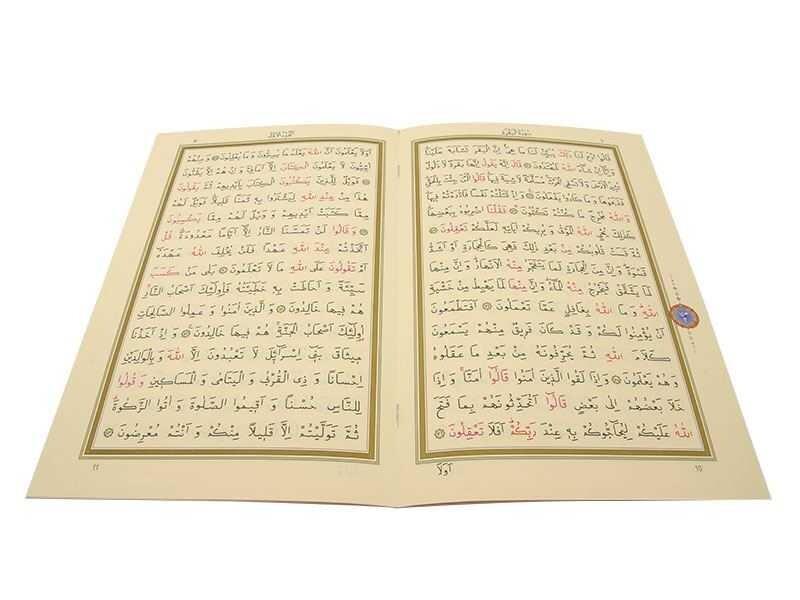 سورة البقرة
قَالُوا ادْعُ لَنَا رَبَّكَ يُبَيِّنْ لَنَا مَا هِيَ اِنَّ الْبَقَرَ تَشَابَهَ عَلَيْنَا
وَاِنَّا اِنْ شَاءَ اللّٰهُ لَمُهْتَدُونَ قَالَ اِنَّهُ يَقُولُ اِنَّهَا بَقَرَةٌ لَا ذَلُولٌ
تُثِيرُ الْاَرْضَ وَلَا تَسْقِي الْحَرْثَ مُسَلَّمَةٌ لَا شِيَةَ فِيهَا قَالُوا الْاٰنَ جِئْتَ بِالْحَقِّ
فَذَبَحُوهَا وَمَا كَادُوا يَفْعَلُونَ وَاِذْ قَتَلْتُمْ نَفْسًا فَادّٰرَءْتُمْ فِيهَا
وَاللّٰهُ مُخْرِجٌ مَا كُنْتُمْ تَكْتُمُونَ فَقُلْنَا اضْرِبُوهُ بِبَعْضِهَا
كَذٰلِكَ يُحْيِ اللّٰهُ الْمَوْتٰى وَيُرِيكُمْ اٰيَاتِهِ لَعَلَّكُمْ تَعْقِلُونَ
ثُمَّ قَسَتْ قُلُوبُكُمْ مِنْ بَعْدِ ذٰلِكَ فَهِيَ كَالْحِجَارَةِ اَوْ اَشَدُّ
قَسْوَةً وَاِنَّ مِنَ الْحِجَارَةِ لَمَا يَتَفَجَّرُ مِنْهُ الْاَنْهَارُ وَاِنَّ مِنْهَا
لَمَا يَشَّقَّقُ فَيَخْرُجُ مِنْهُ الْمَاءُ وَاِنَّ مِنْهَا لَمَا يَهْبِطُ مِنْ خَشْيَةِ
اللّٰهِ وَمَا اللّٰهُ بِغَافِلٍ عَمَّا تَعْمَلُونَ اَفَتَطْمَعُونَ
اَنْ يُؤْمِنُوا لَكُمْ وَقَدْ كَانَ فَرِيقٌ مِنْهُمْ يَسْمَعُونَ
كَلَامَ اللّٰهِ ثُمَّ يُحَرِّفُونَهُ مِنْ بَعْدِ مَا عَقَلُوهُ
وَهُمْ يَعْلَمُونَ وَاِذَا لَقُوا الَّذِينَ اٰمَنُوا قَالُوا اٰمَنَّا وَاِذَا
خَلَا بَعْضُهُمْ اِلٰى بَعْضٍ قَالُوا اَتُحَدِّثُونَهُمْ بِمَا فَتَحَ
اللّٰهُ عَلَيْكُمْ لِيُحَاجُّوكُمْ بِهِ عِنْدَ رَبِّكُمْ اَفَلَا تَعْقِلُونَ
اَوَلَا
اَوَلَا يَعْلَمُونَ اَنَّ اللّٰهَ يَعْلَمُ مَا يُسِرُّونَ وَمَا يُعْلِنُونَ وَمِنْهُمْ
اُمِّيُّونَ لَا يَعْلَمُونَ الْكِتَابَ اِلَّا اَمَانِيَّ وَاِنْ هُمْ اِلَّا يَظُنُّونَ
فَوَيْلٌ لِلَّذِينَ يَكْتُبُونَ الْكِتَابَ بِاَيْدِيهِمْ ثُمَّ يَقُولُونَ
هٰذَا مِنْ عِنْدِ اللّٰهِ لِيَشْتَرُوا بِهِ ثَمَنًا قَلِيلًا فَوَيْلٌ لَهُمْ
مِمَّا كَتَبَتْ اَيْدِيهِمْ وَوَيْلٌ لَهُمْ مِمَّا يَكْسِبُونَ
وَقَالُوا لَنْ تَمَسَّنَا النَّارُ اِلَّا اَيَّامًا مَعْدُودَةً قُلْ
اَتَّخَذْتُمْ عِنْدَ اللّٰهِ عَهْدًا فَلَنْ يُخْلِفَ اللّٰهُ عَهْدَهُ
اَمْ تَقُولُونَ عَلَى اللّٰهِ مَا لَا تَعْلَمُونَ بَلٰى مَنْ كَسَبَ
سَيِّئَةً وَاَحَاطَتْ بِهِ خَطِيئَتُهُ فَاُولٰئِكَ اَصْحَابُ النَّارِ
هُمْ فِيهَا خَالِدُونَ وَالَّذِينَ اٰمَنُوا وَعَمِلُوا الصَّالِحَاتِ
اُولٰئِكَ اَصْحَابُ الْجَنَّةِ هُمْ فِيهَا خَالِدُونَ وَاِذْ اَخَذْنَا
مِيثَاقَ بَنِي اِسْرَائِيلَ لَا تَعْبُدُونَ اِلَّا اللّٰهَ وَبِالْوَالِدَيْنِ
اِحْسَانًا وَذِي الْقُرْبٰى وَالْيَتَامٰى وَالْمَسَاكِينِ وَقُولُوا
لِلنَّاسِ حُسْنًا وَاَقِيمُوا الصَّلٰوةَ وَاٰتُوا الزَّكٰوةَ
ثُمَّ تَوَلَّيْتُمْ اِلَّا قَلِيلًا مِنْكُمْ وَاَنْتُمْ مُعْرِضُونَ
١١